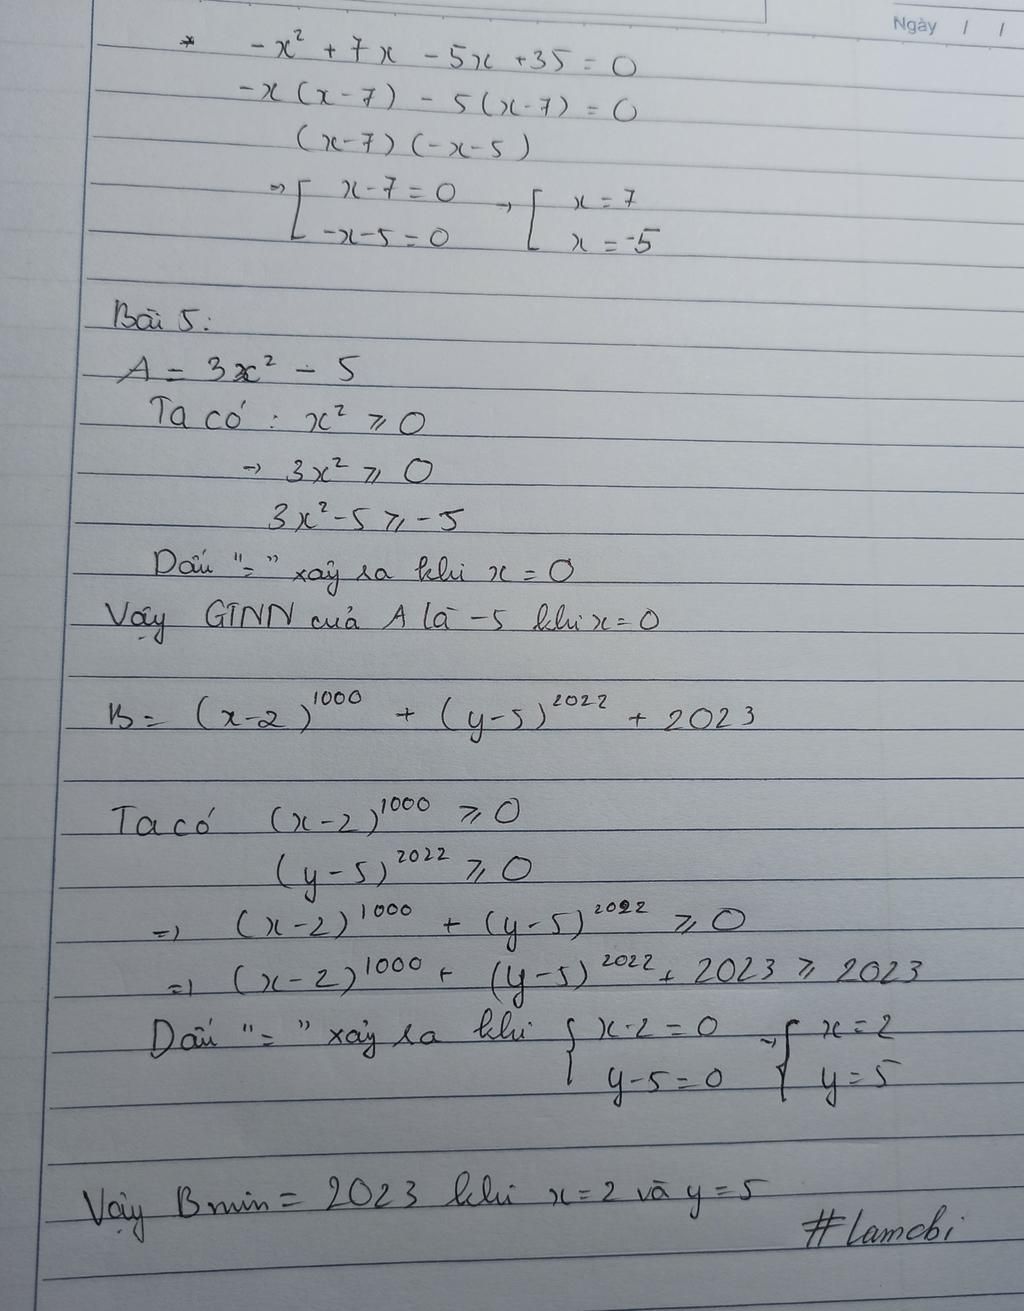 Ngày / /
* -x² + 7x - 5x + 35 = 0
-x(x-7) - 5(x-7) = 0
(x-7)(-x-5)
=> [ x-7=0 → [ x = 7
-x-5=0 x = -5
Bài 5:
A = 3x² - 5
Ta có : x² ⩾ 0
→ 3x² ⩾ 0
3x²-5 ⩾ -5
Dấu "=" xảy ra khi x = 0
Vậy GTNN của A là -5 khi x=0
B= (x-2)¹⁰⁰⁰ + (y-5)²⁰²² + 2023
Ta có (x-2)¹⁰⁰⁰ ⩾ 0
(y-5)²⁰²² ⩾ 0
=> (x-2)¹⁰⁰⁰ + (y-5)²⁰²² ⩾ 0
=> (x-2)¹⁰⁰⁰ + (y-5)²⁰²² + 2023 ⩾ 2023
Dấu "=" xảy ra khi { x-2=0 → { x=2
y-5=0 y=5
Vậy Bmin = 2023 khi x=2 và y=5
#lamchi